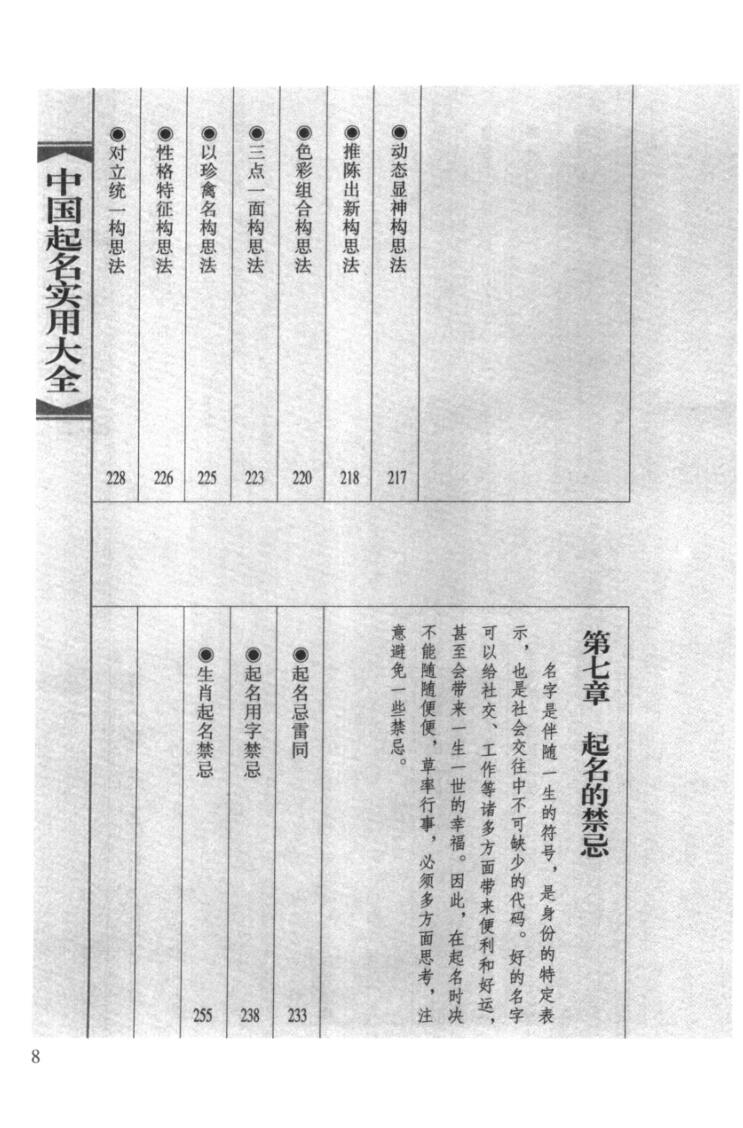 ●动态显神构思法 217
●推陈出新构思法 218
●色彩组合构思法 220
●三点一面构思法 223
●以珍禽名构思法 225
●性格特征构思法 226
●对立统一构思法 228
中国起名实用大全
第七章 起名的禁忌
名字是伴随一生的符号，是身份的特定表
示，也是社会交往中不可缺少的代码。好的名字
可以给社交、工作等诸多方面带来便利和好运，
甚至会带来一生一世的幸福。因此，在起名时决
不能随随便便，草率行事，必须多方面思考，注
意避免一些禁忌。
●起名忌雷同 233
●起名用字禁忌 238
●生肖起名禁忌 255
8